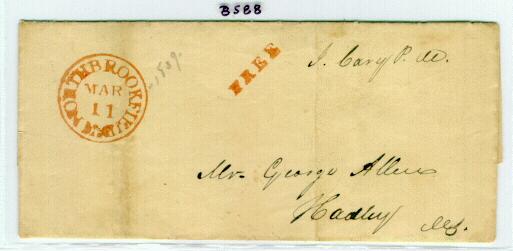 3588
NORTH BROOKFIELD MS
MAR
11
1839.
FREE
J. Cary P. M.
Mr. George Allen
Hadley
Ms.